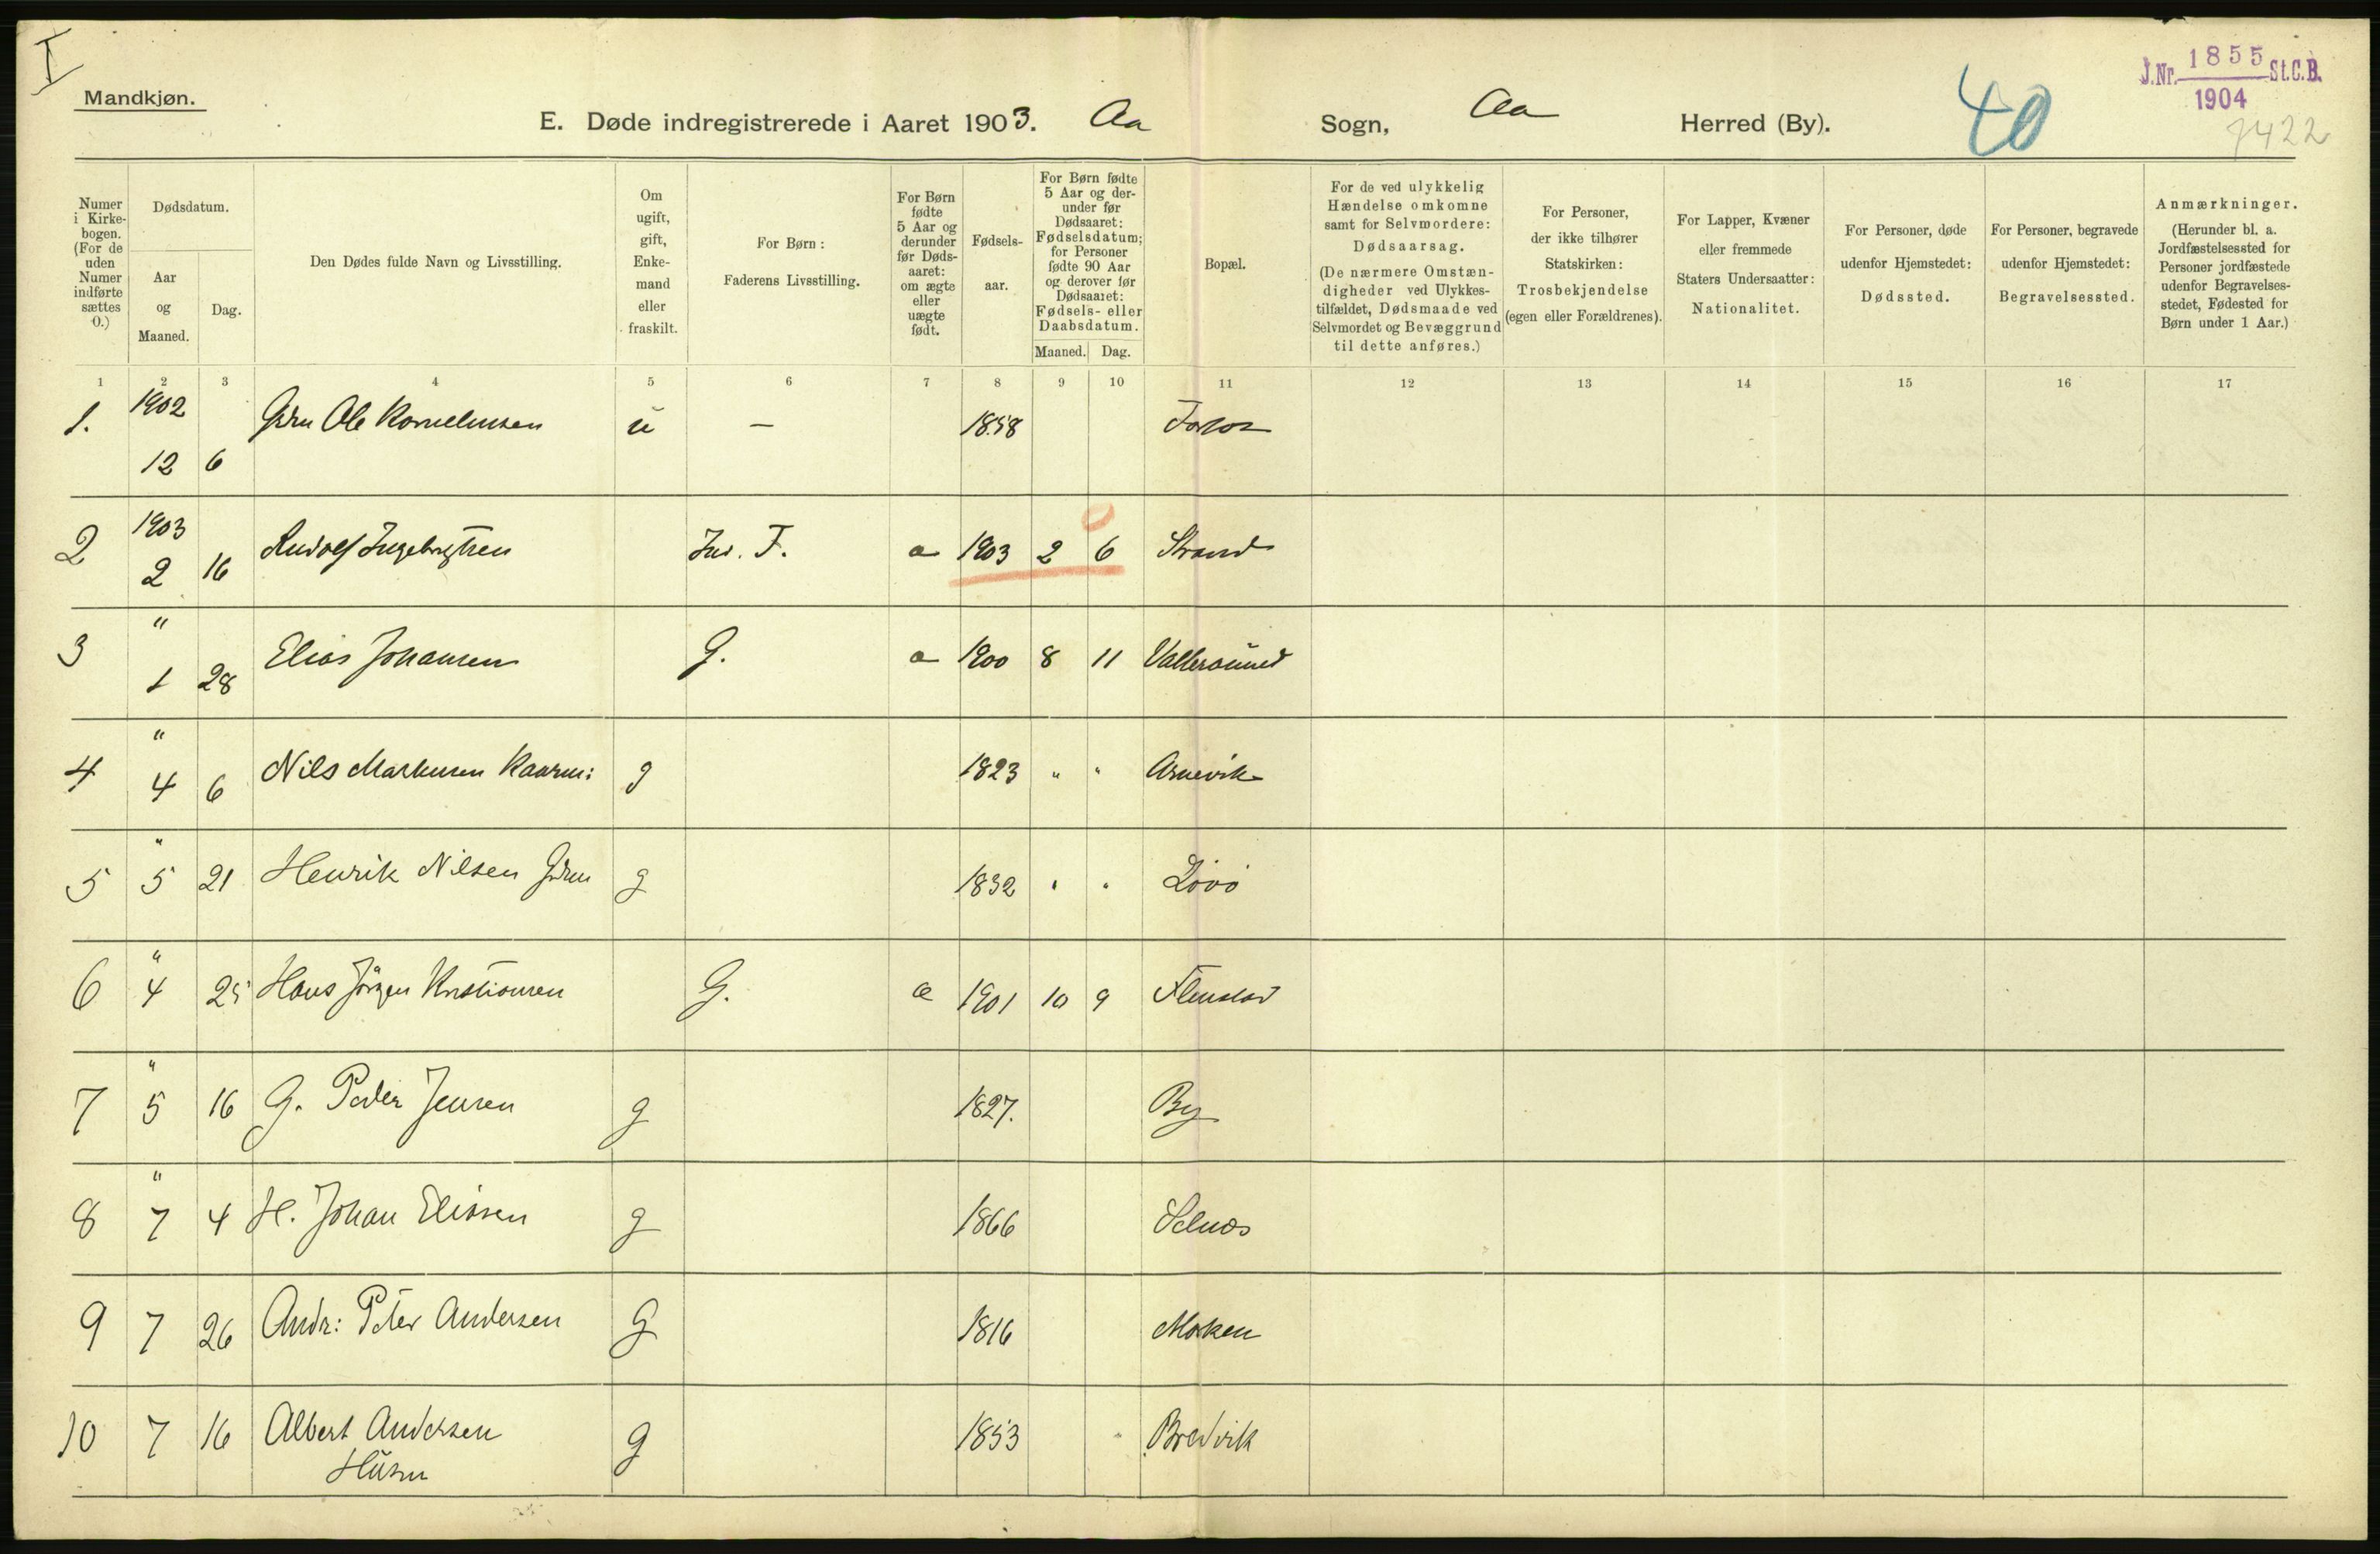 I
Mandkjøn.
E. Døde indregistrerede i Aaret 1903. Aa Sogn, Aa Herred (By).
40
J.Nr. 1855 St.C.B.
1904
7422
Numer i Kirkebogen. (For de uden Numer indførte sættes 0.)
Dødsdatum.
Aar og Maaned.
Dag.
Den Dødes fulde Navn og Livsstilling.
Om ugift, gift, Enkemand eller fraskilt.
For Børn: Faderens Livsstilling.
For Børn fødte 5 Aar og derunder før Dødsaaret: om ægte eller uægte født.
Fødselsaar.
For Børn fødte 5 Aar og derunder før Dødsaaret: Fødselsdatum; for Personer fødte 90 Aar og derover før Dødsaaret: Fødsels- eller Daabsdatum.
Maaned. Dag.
Bopæl.
For de ved ulykkelig Hændelse omkomne samt for Selvmordere: Dødsaarsag. (De nærmere Omstændigheder ved Ulykkestilfældet, Dødsmaade ved Selvmordet og Bevæggrund til dette anføres.)
For Personer, der ikke tilhører Statskirken: Trosbekjendelse (egen eller Forældrenes).
For Lapper, Kvæner eller fremmede Staters Undersaatter: Nationalitet.
For Personer, døde udenfor Hjemstedet: Dødssted.
For Personer, begravede udenfor Hjemstedet: Begravelsessted.
Anmærkninger. (Herunder bl. a. Jordfæstelsessted for Personer jordfæstede udenfor Begravelsesstedet, Fødested for Børn under 1 Aar.)
1 2 3 4 5 6 7 8 9 10 11 12 13 14 15 16 17
1. 1902 12 6 Ole Korneliusen u — 1858
2 1903 2 16 Rudolf Ingebrigtsen Ind. F. a 1903 2 6 Strand
3 " 1 28 Elias Johansen G. a 1900 8 11 Vallersund
4 " 4 6 Nils Markusen Kaarm: g 1823 " " Arnevik
5 " 5 21 Henrik Nilsen g 1832 " " Lövö
6 " 4 25 Hans Jörgen Kristiansen G. a 1901 10 9
7 " 5 16 G. Peder Jensen g 1827. By
8 " 7 4 H. Johan Eliasen g 1866 Selnæs
9 7 26 Andr: Peter Andersen G 1816 Moken
10 7 16 Albert Andersen g 1853 Bredvik
Husm